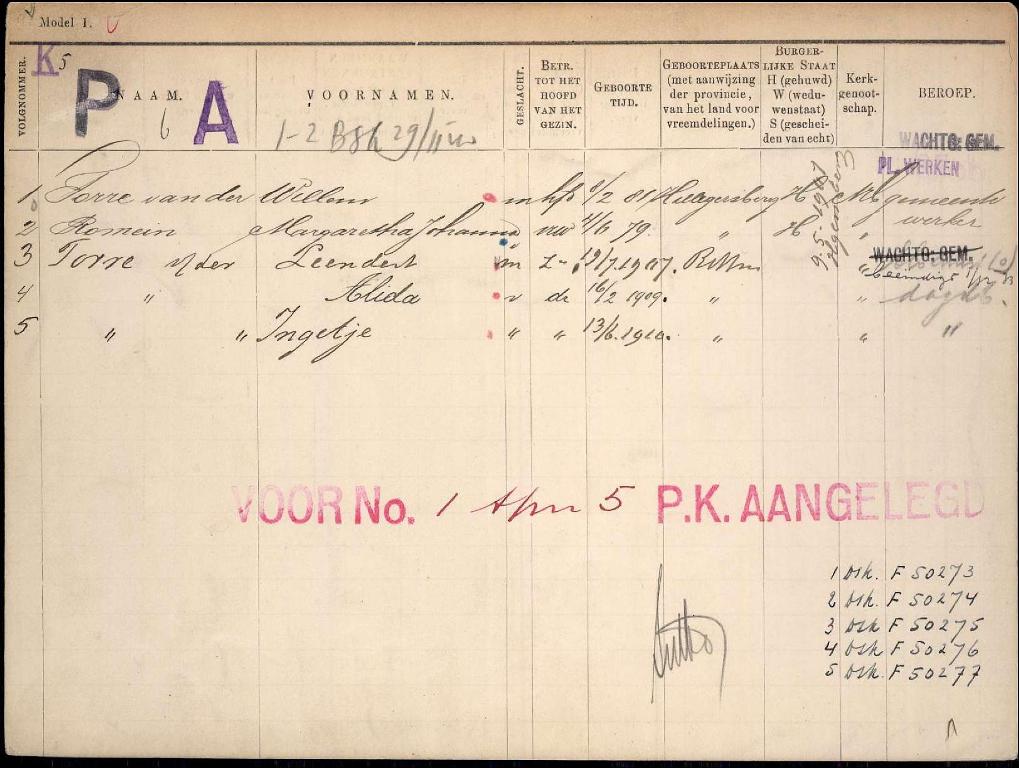 Model 1.
K 5
P A 6
VOLGNOMMER.
NAAM.
VOORNAMEN.
GESLACHT.
BETR. TOT HET HOOFD VAN HET GEZIN.
GEBOORTE TIJD.
GEBOORTEPLAATS (met aanwijzing der provincie, van het land voor vreemdelingen.)
BURGERLIJKE STAAT H (gehuwd) W (weduwenstaat) S (gescheiden van echt)
Kerkgenootschap.
BEROEP.
1-2 BSK 29/11
WACHTG: GEM.
PL. WERKEN
1 Torre van der Willem m hfd 9/2 81 Hillegersberg H NH gemeente
werker
2 Romein Margaretha Johanna vrw 4/6 79. " H "
9-5-1907
WACHTG: GEM.
3 Torre v/der Leendert m z 19/7.1907. Rottm "
beemdigt
4 " Alida v dr 16/2 1909. " "
5 " " Ingetje " " 13/6.1910. " " "
VOOR No. 1 5 P.K. AANGELEGD
1 dsk. F 50273
2 dsk. F 50274
3 dsk F 50275
4 dsk F 50276
5 dsk. F 50277